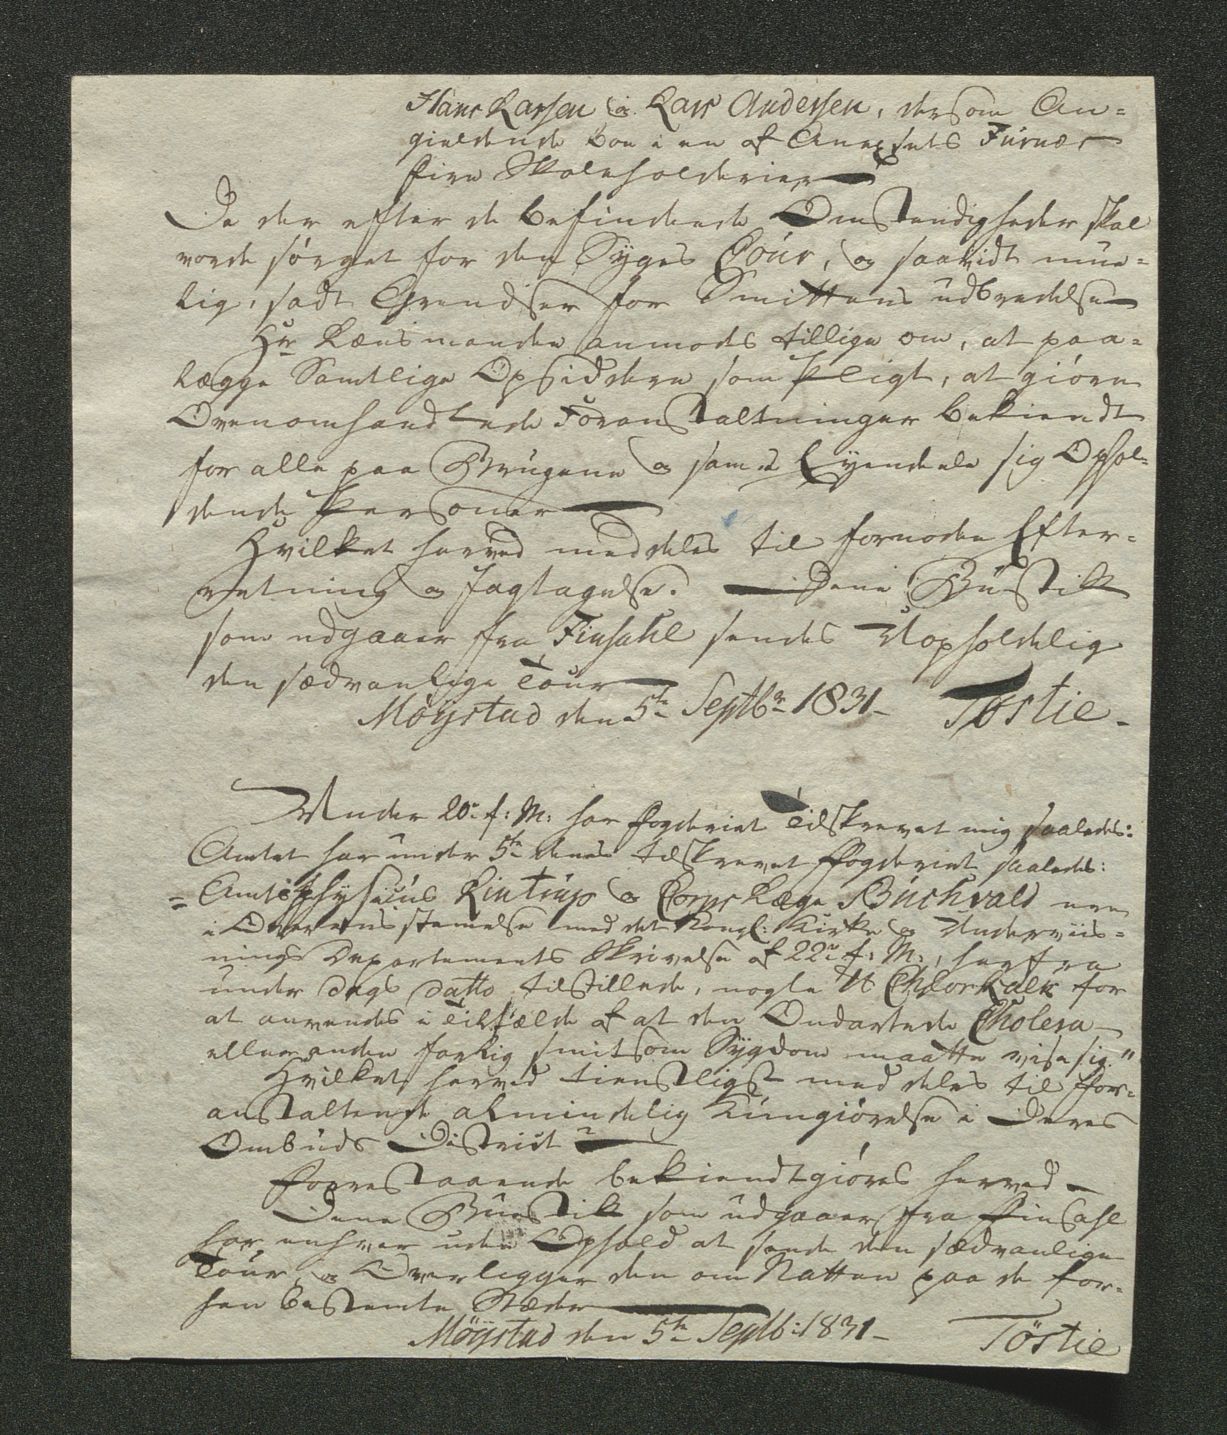 Hans Larsen og Lars Andersen, der som An-
gieldende boe i en af Anexets Furnæs
fire Skoleholderier
Da der efter de befindende Omstændigheder skal
vorde sørget for den Syges Cour, og saavidt mue-
lig, sadt Grændser for Smittens udbredelse
Hr Lænsmanden anmodes tillige om, at paa-
lægge Samtlige Opsiddere som Pligt, at giøre
Ovenomhandlede Foranstaltninger bekiendt
for alle paa Brugene og samt Eyendele sig Ophol-
dende Personer
Hvilket herved meddeles til fornøden Efter-
retning og Jagtagelse. Dene Budstik
som udgaaer fra Finsahl sendes Uopholdelig
den sædvanlige Tour
Møystad den 5te Septbr 1831 Tøstie
Under 20de f: M: har Fogderiet Tilskrevet mig saaledes:
Amtet har under 5te denes tilskrevet Fogderiet saaledes:
= Amtsphysicus Rintrup og Corps Læge Buchvald ere
i Overensstemelse med det Kongl: Kirke og Underviis-
nings Departements Skrivelse af 22de f: M:, herfra
under Dags Datto tilstillede, nogle ℔ Chlorkalk for
at anvendes i Tilfælde af at den Ondartede Cholera
eller anden farlig smitsom Sygdom maatte vise sig"
Hvilket herved tienstligst meddeles til For-
anstaltende almindelig Kungiørelse i Deres
Ombuds District
Forestaaende bekiendtgiøres herved
Dene Budstik som udgaaer fra Finsahl
har enhver uden Ophold at sende den sædvanlige
Tour, og Overligger den om Natten paa de for-
hen bestemte Stæder
Møystad den 5te Septb: 1831 Tøstie